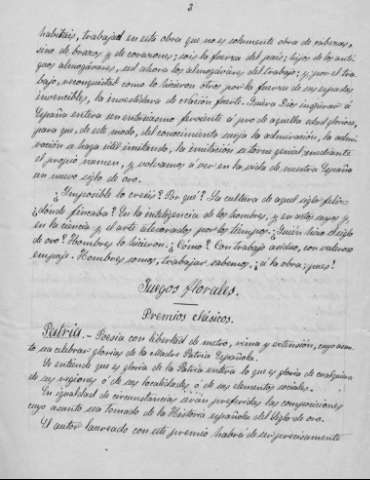 3
habláis, trabajad en esta obra que no es solamente obra de cabezas,
sino de brazos y de corazones; sois la fuerza del país; hijos de los anti-
guos almogávares, sed ahora los almogávares del trabajo; y, por el tra-
bajo, reconquistad como lo hicieron otros por la fuerza de sus espadas
invencibles, la investidura de nación fuerte. Quiera Dios inspirar á
España entera un entusiasmo ferviente á pro de aquella edad gloriosa,
para que, de este modo, del conocimiento surja la admiración, la admi-
ración se haga útil imitando, la imitación se torne genial mediante
el propio numen, y volvamos á ver en la vida de nuestra España
un nuevo siglo de oro.
¿Imposible lo creéis? ¿Por qué? La cultura de aquel siglo feliz
¿dónde fincaba? En la inteligencia de los hombres, y en
en la ciencia y el arte por los tiempos. ¿Quién hizo el siglo
de oro? Hombres lo hicieron. ¿Cómo? Con trabajo asiduo, con valeroso
empuje. Hombres somos, trabajar sabemos. ¡á la obra, pues!
Juegos florales.
Premios clásicos.
Patria.— Poesía con libertad de metro, rima y extensión, cuyo asun-
to sea celebrar glorias de la Madre Patria Española.
Se entiende que es gloria de la Patria entera lo que es gloria de cualquiera
de sus regiones ó de sus localidades, ó de sus elementos sociales.
En igualdad de circunstancias serán preferidas las composiciones
cuyo asunto sea tomado de la Historia española del siglo de oro.
El autor laureado con este premio habrá de ser precisamente